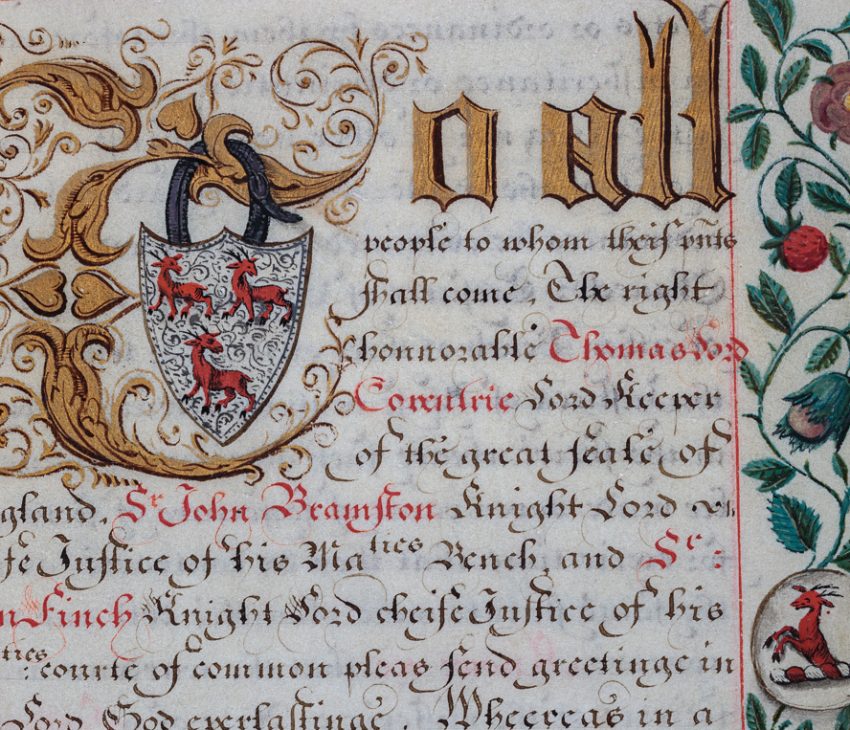 To all
people to whom theis pnts
shall come, The right
honnorable Thomas Lord
Coventrie Lord Keeper
of the great seale of
gland, Sr John Bramston Knight Lord
fe Justice of his Maties Bench and Sr:
n Finch Knight Lord cheife Justice of his
ties: courte of common pleas send greetinge in
Lord God everlastinge, Whereas in a